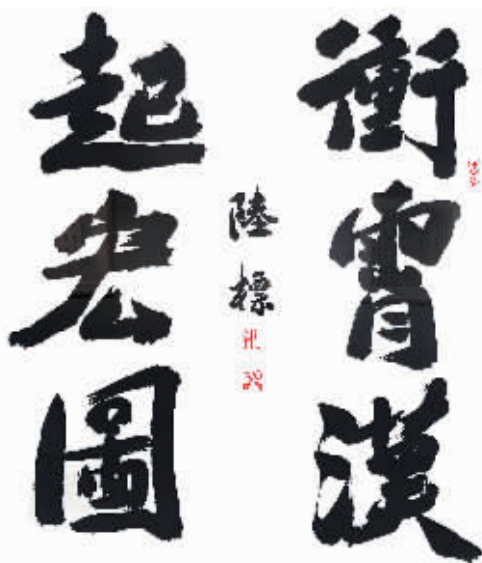 衝霄漢
陸標
起宏圖